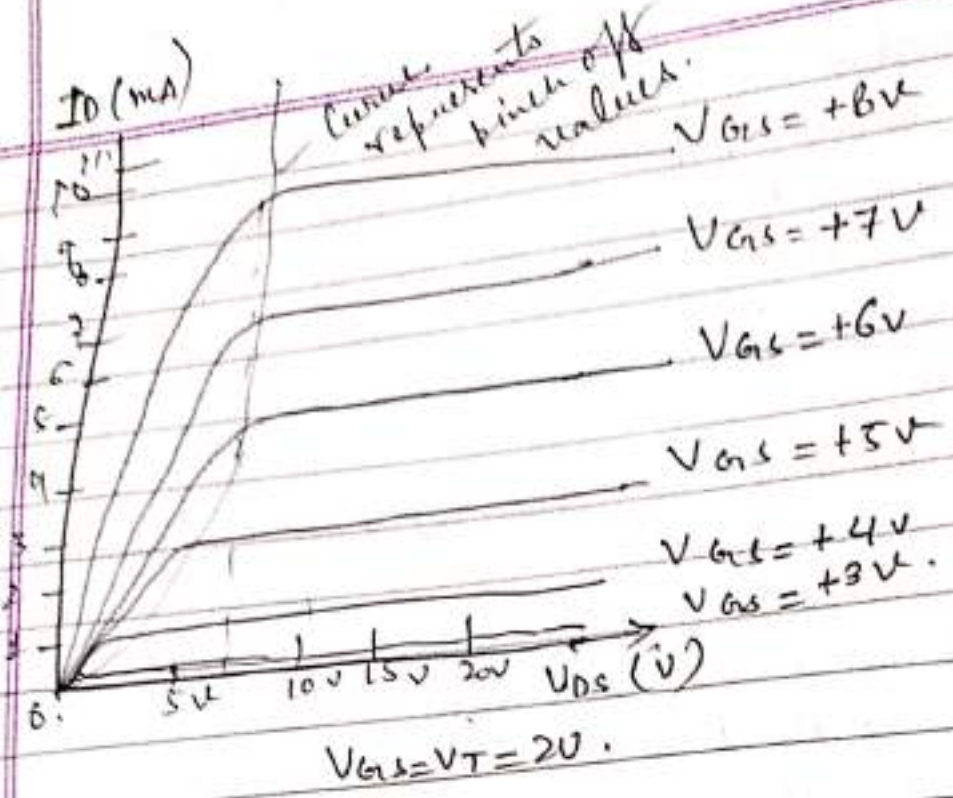 ID (mA)
Curve
represents
pinch off
values.
VGS = +8V
VGS = +7V
VGS = +6V
VGS = +5V
VGS = +4V
VGS = +3V.
10
9
8
7
6
5
4
0
5V
10V
15V
20V
VDS (V)
VGS=VT=2V.